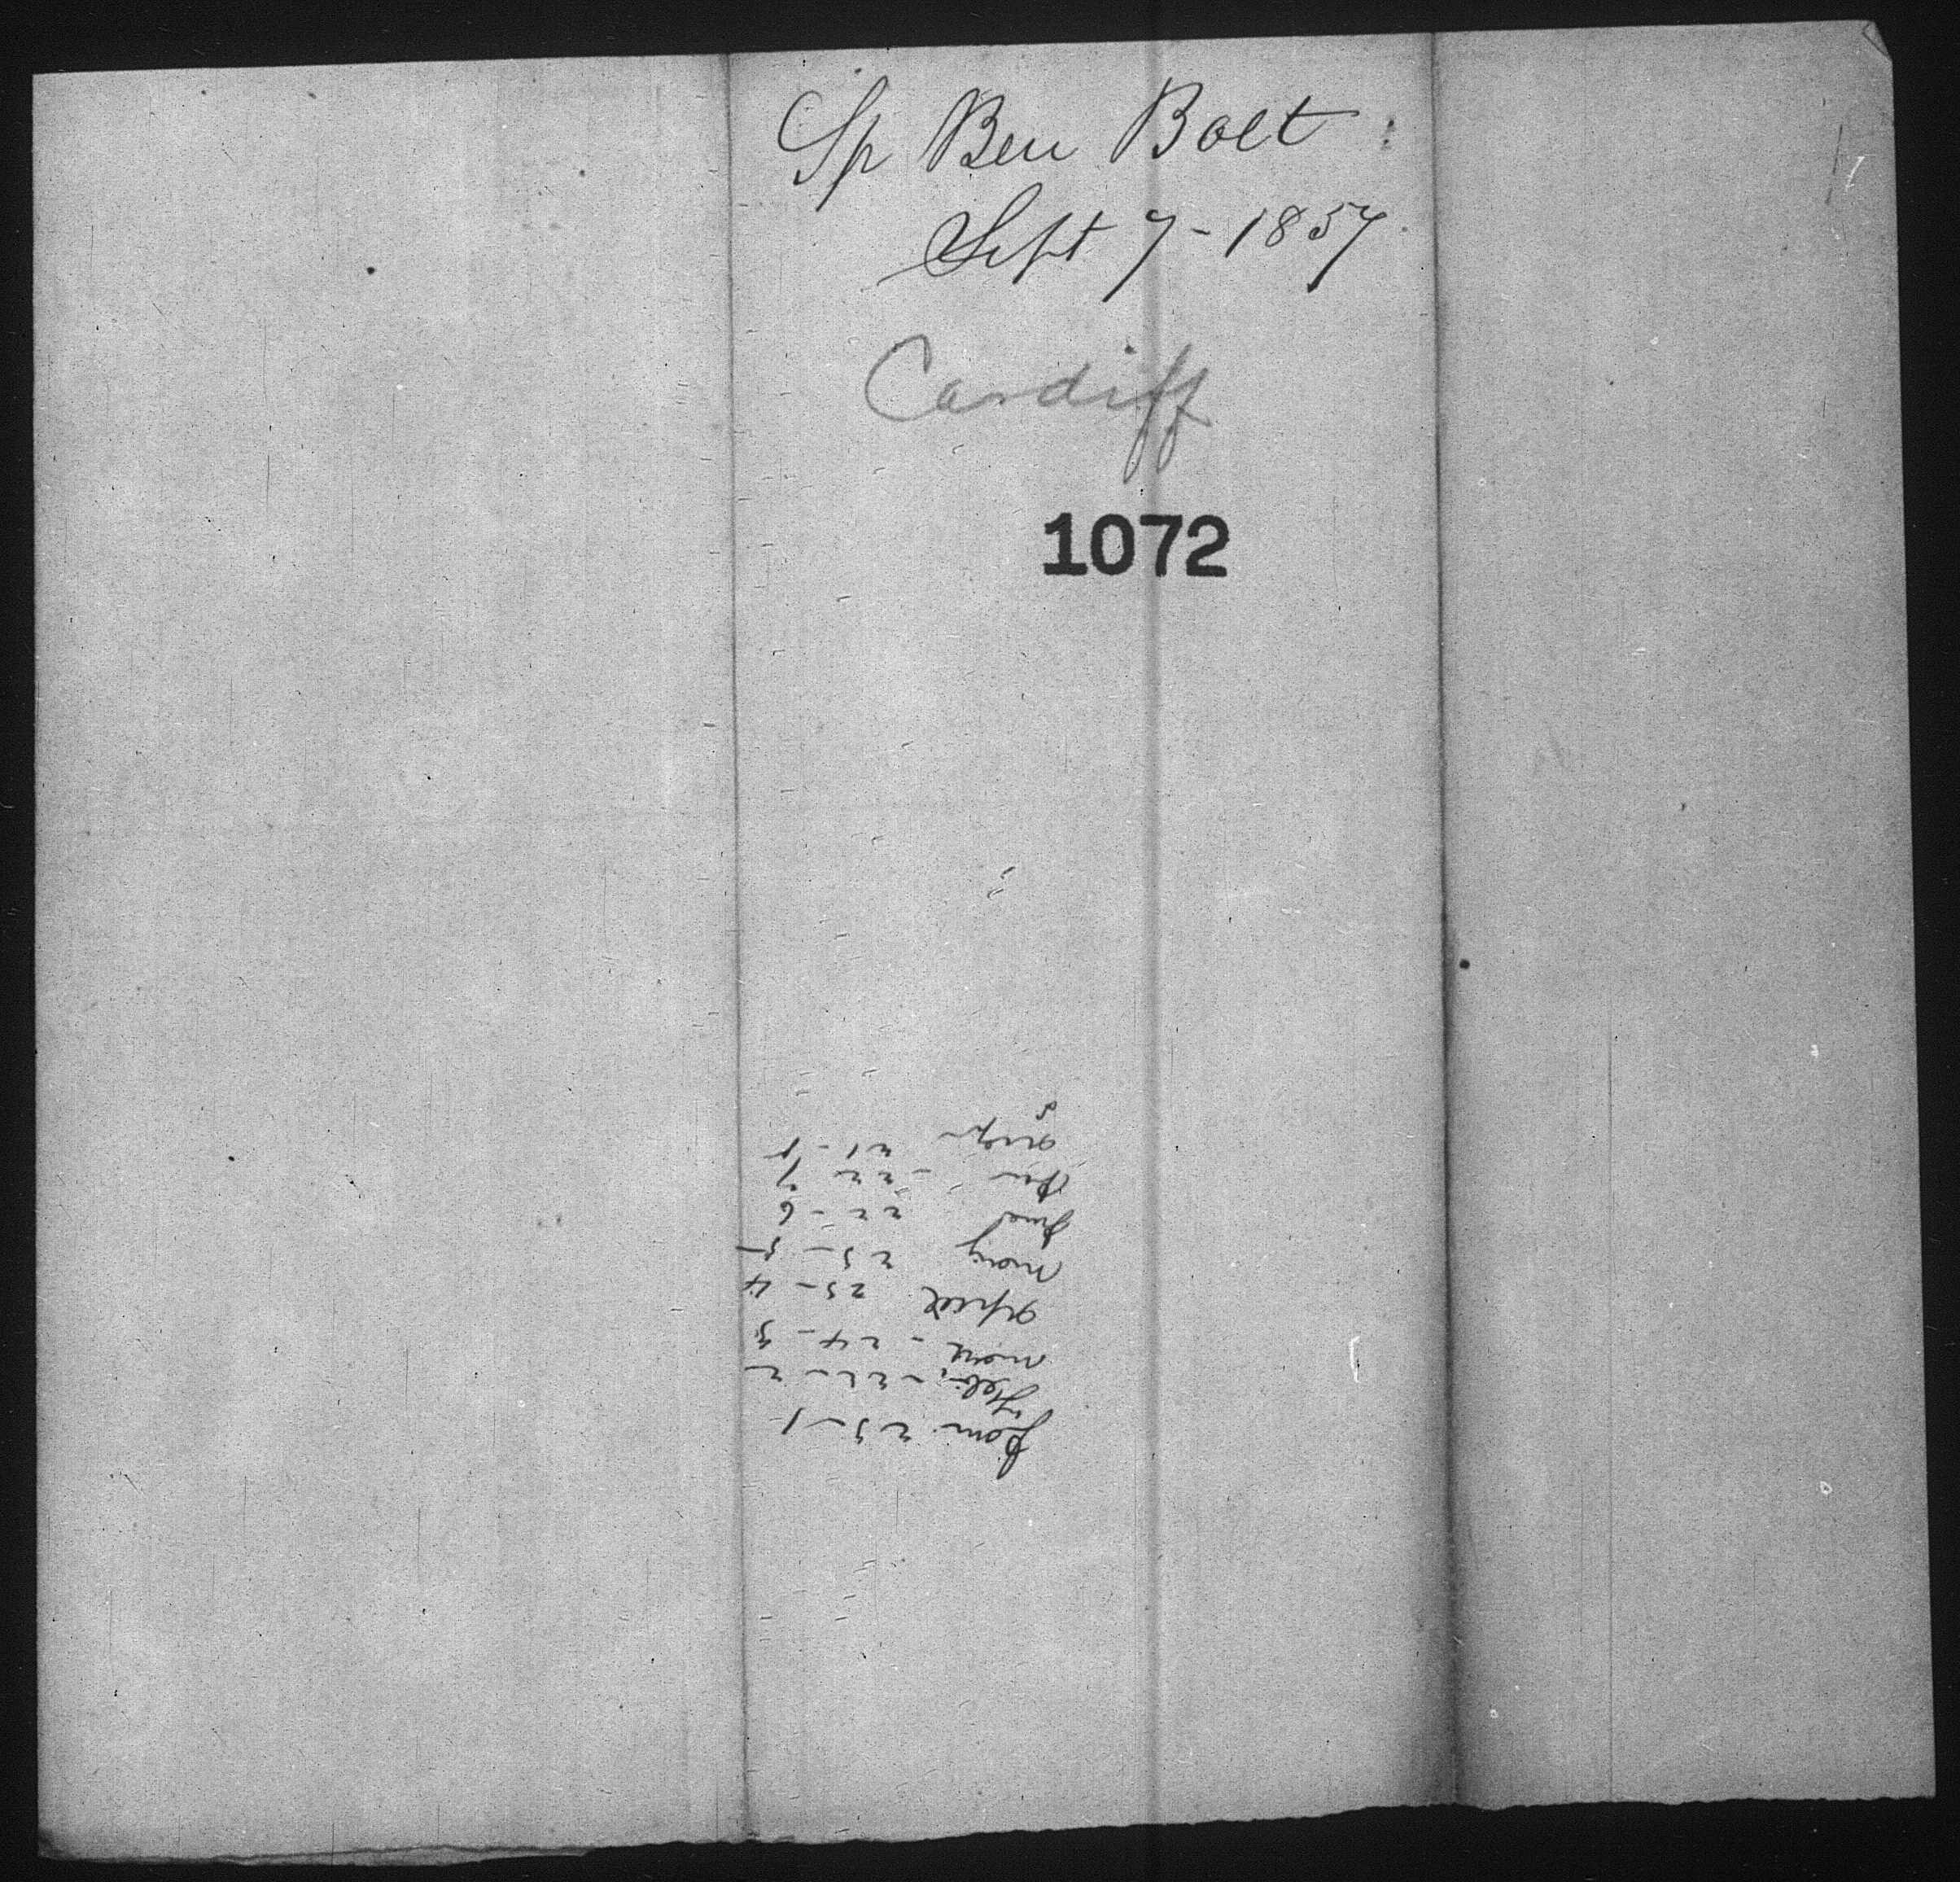 Sp Ben Bolt
Sept 7 - 1857
Cardiff
1072
Jan. 23 - 1
Feb. - 22 - 2
Mar - 24 - 3
April 23 - 4
May 23 - 5
June 22 - 6
22 - 7
Aug 21 - 8